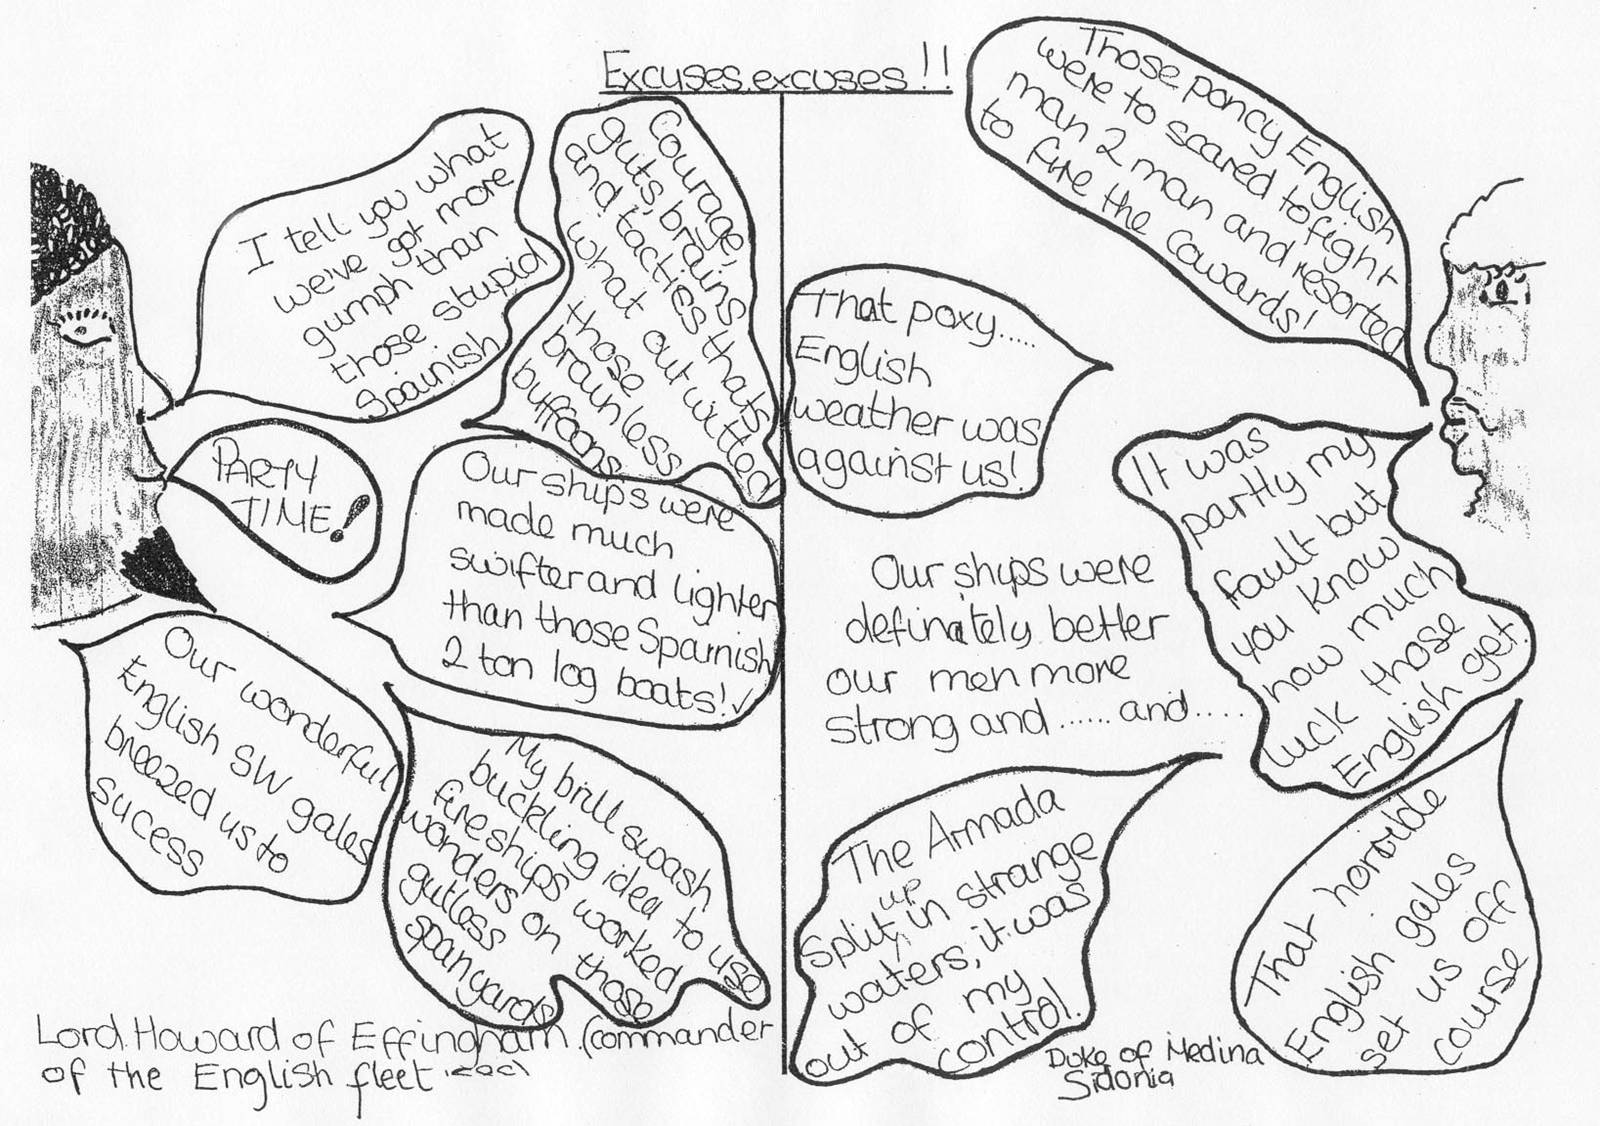 Excuses, excuses!!
I tell you what
we've got more
gumph than
those stupid
Spainish
Courage,
guts, brains
and tactics thats
what out witted
those
brainless
buffoons
PARTY
TIME!
Our ships were
made much
swifter and lighter
than those Sparnish
2 ton log boats!
Our wonderful
English SW gales
breezed us to
sucess
My brill swash
buckling idea to use
fireships worked
wonders on those
gutless
spanyards
Lord Howard of Effingham (commander
of the English fleet
Those poncy English
were to scared to fight
man 2 man and resorted
to fire the cowards!
That poxy.....
English
weather was
against us!
It was
partly my
fault but
you know
how much
luck those
English get
Our ships were
definately better
our men more
strong and ...... and .....
The Armada
split up in strange
waters, it was
out of my
control!
That horrible
English gales
set us off
course
Duke of Medina
Sidonia